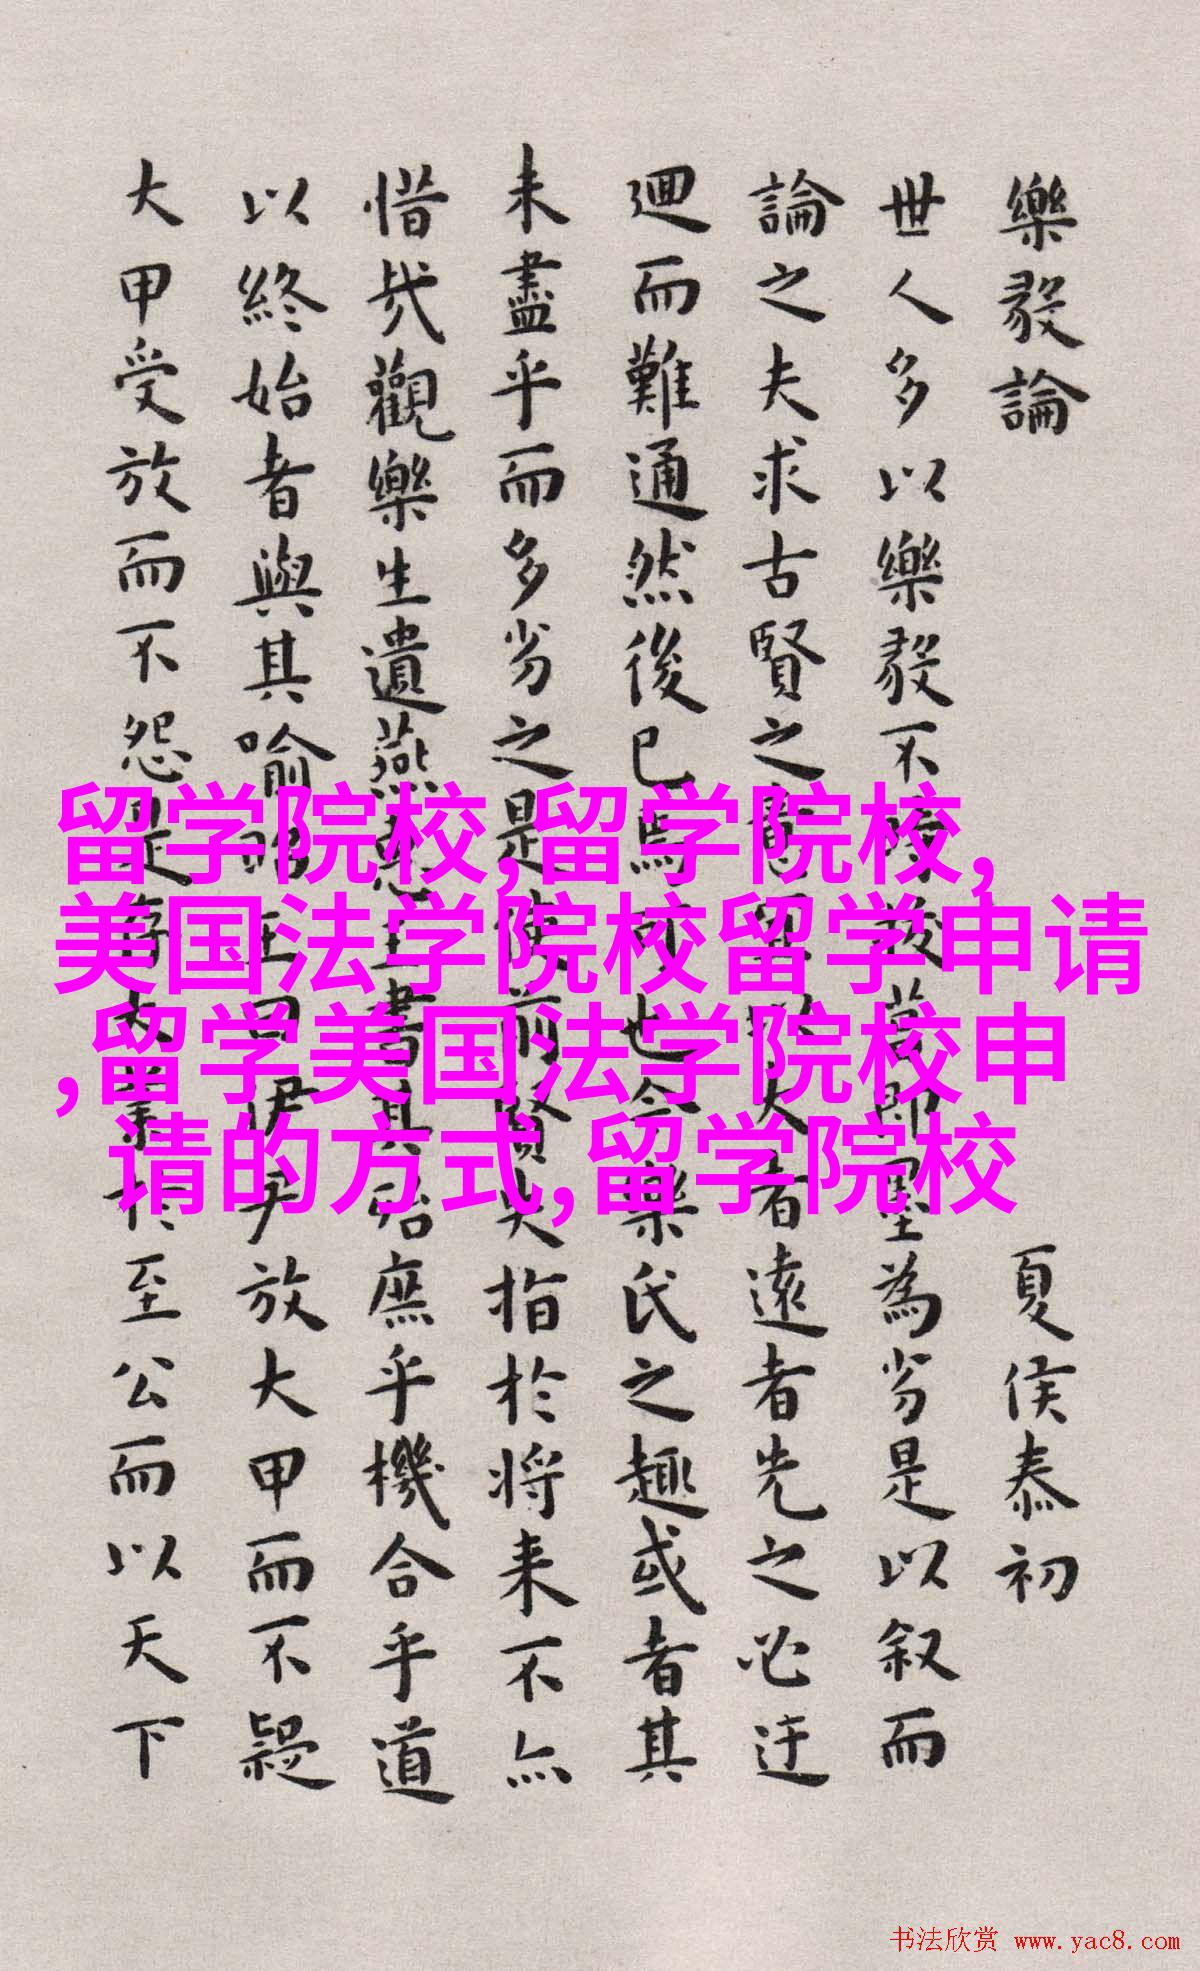 樂毅論 夏侯泰初
世人多以樂毅不 即墨為劣是以叙而
論之夫求古賢之 大者遠者先之必迂
迴而難通然後已焉可也今樂氏之趣或者其
未盡乎而多劣之是使前賢失指於将来不亦
惜哉觀樂生遺燕惠王書其殆庶乎機合乎道
以終始者與其喻昭王曰伊尹放大甲而不疑
大甲受放而不怨是 大業於至公而以天下
留学院校,留学院校,
美国法学院校留学申请
,留学美国法学院校申
请的方式,留学院校
书法欣赏 www.yac8.com